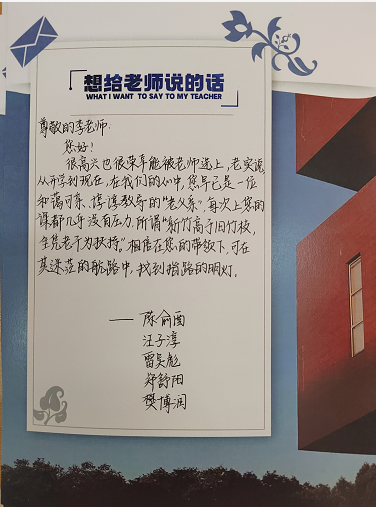 想给老师说的话
WHAT I WANT TO SAY TO MY TEACHER
尊敬的李老师:
您好!
很高兴也很荣幸能被老师选上,老实说
从开学到现在,在我们的心中,您早已是一位
和蔼可亲、谆谆教导的“老父亲”,每次上您的
课都几乎没有压力。所谓“新竹高于旧竹枝,
全凭老干为扶持”,相信在您的带领下,可在
其迷茫的航路中,找到指路的明灯。
—— 陈俞酉
汪子淳
雷昊彪
郑舒阳
樊博润